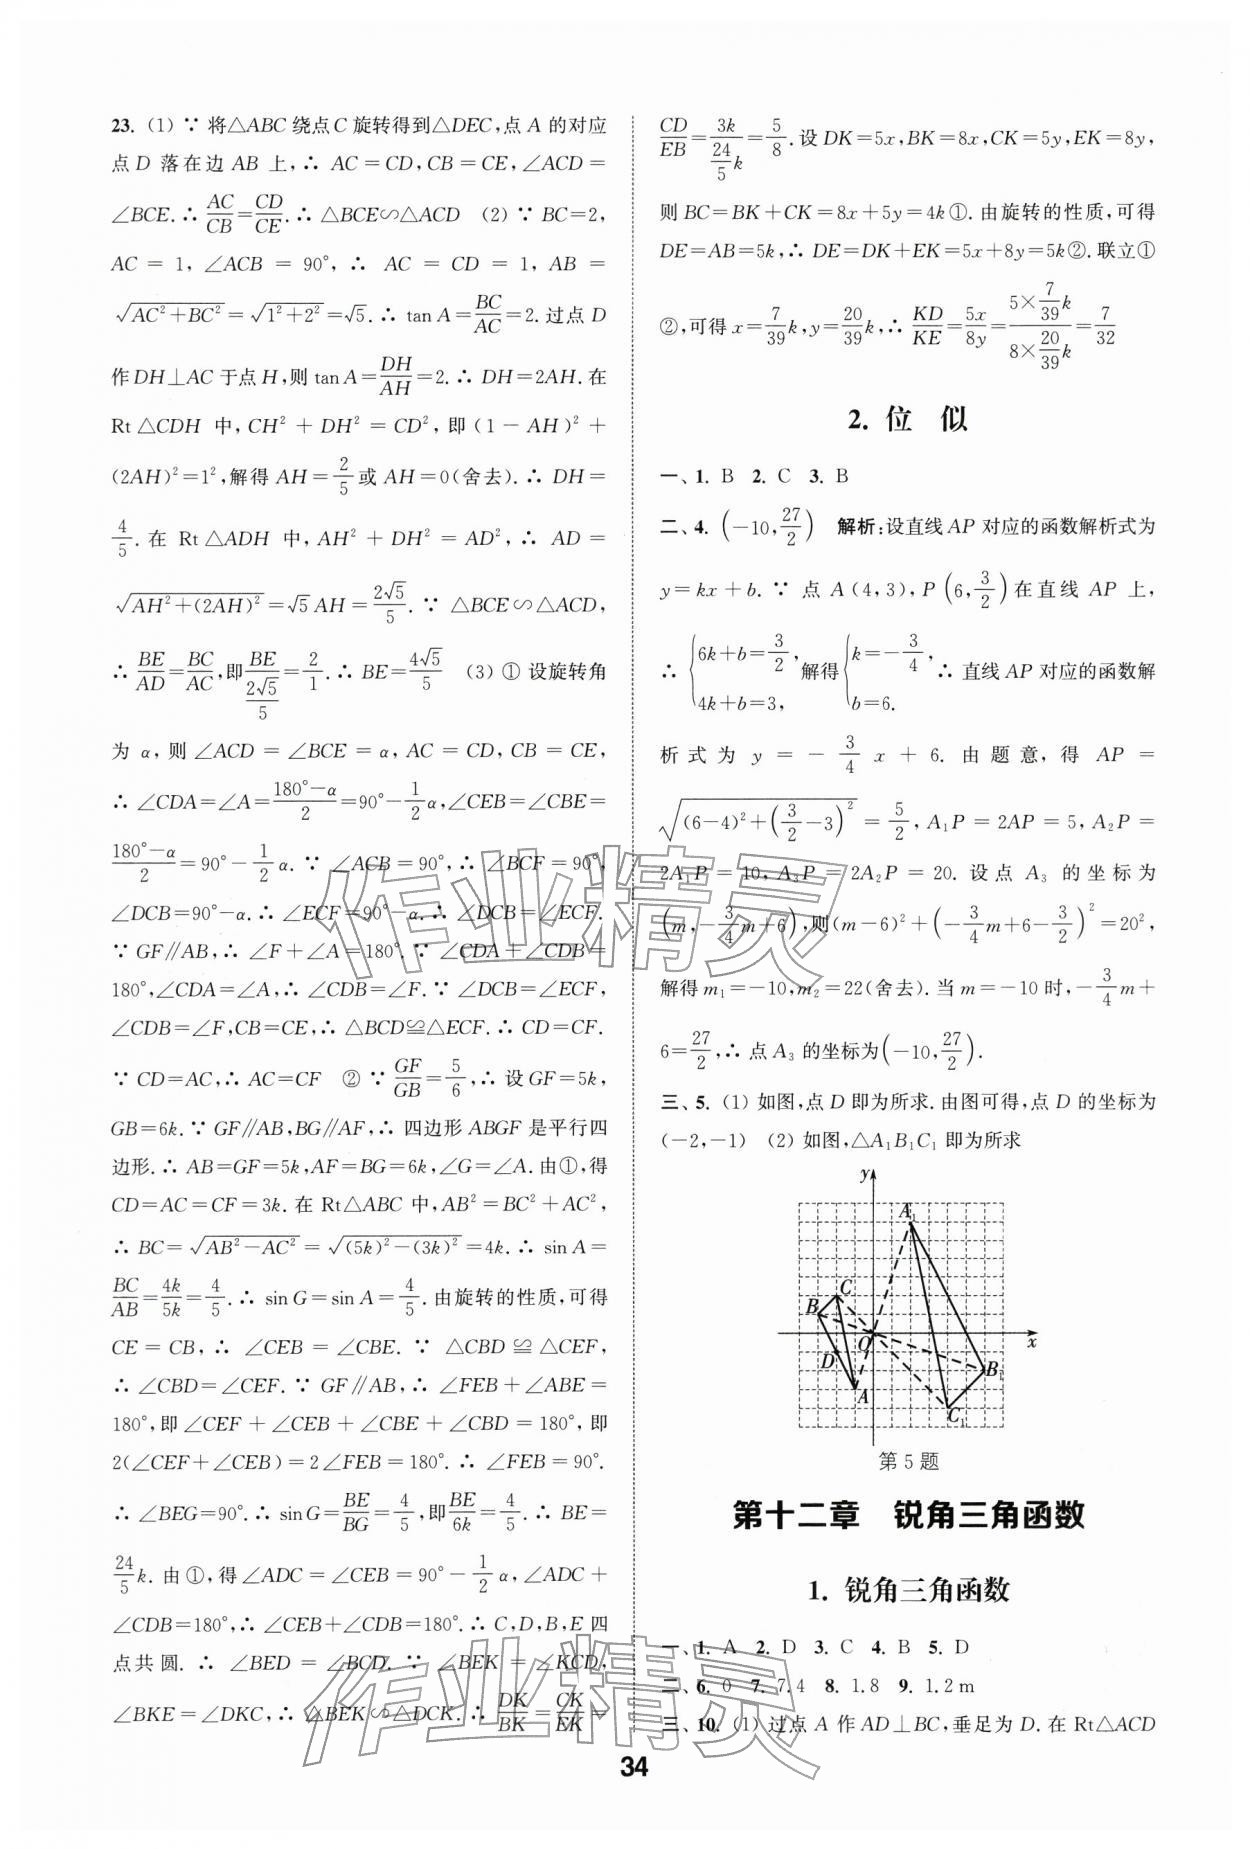 23. (1) ∵ 将△ABC 绕点 C 旋转得到△DEC,点 A 的对应
点 D 落在边 AB 上,∴ AC=CD,CB=CE,∠ACD=
∠BCE.∴ AC/CB=CD/CE.∴ △BCE∽△ACD (2) ∵ BC=2,
AC = 1, ∠ACB = 90°, ∴ AC = CD = 1, AB =
√(AC²+BC²)=√(1²+2²)=√5.∴ tan A=BC/AC=2.过点 D
作DH⊥AC于点H,则 tan A=DH/AH=2.∴ DH=2AH.在
Rt△CDH 中,CH²+DH²=CD²,即(1-AH)²+
(2AH)²=1²,解得 AH=2/5或 AH=0(舍去).∴ DH=
4/5.在 Rt△ADH 中,AH²+DH²=AD²,∴ AD=
√(AH²+(2AH)²)=√5 AH=2√5/5.∵ △BCE∽△ACD,
∴ BE/AD=BC/AC,即BE/(2√5/5)=2/1.∴ BE=4√5/5 (3) ① 设旋转角
为 α,则 ∠ACD = ∠BCE = α,AC = CD,CB = CE,
∴ ∠CDA=∠A=(180°-α)/2=90°-1/2α,∠CEB=∠CBE=
(180°-α)/2=90°-1/2α.∵ ∠ACB=90°,∴ ∠BCF=90°,
∠DCB=90°-α.∴ ∠ECF=90°-α.∴ ∠DCB=∠ECF.
∵ GF∥AB,∴ ∠F+∠A=180°.∵ ∠CDA+∠CDB=
180°,∠CDA=∠A,∴ ∠CDB=∠F.∵ ∠DCB=∠ECF,
∠CDB=∠F,CB=CE,∴ △BCD≌△ECF.∴ CD=CF.
∵ CD=AC,∴ AC=CF ② ∵ GF/GB=5/6,∴ 设 GF=5k,
GB=6k.∵ GF∥AB,BG∥AF,∴ 四边形 ABGF 是平行四
边形.∴ AB=GF=5k,AF=BG=6k,∠G=∠A.由①,得
CD=AC=CF=3k.在 Rt△ABC 中,AB²=BC²+AC²,
∴ BC=√(AB²-AC²)=√((5k)²-(3k)²)=4k.∴ sin A=
BC/AB=4k/5k=4/5.∴ sin G=sin A=4/5.由旋转的性质,可得
CE = CB,∴ ∠CEB = ∠CBE. ∵ △CBD ≌ △CEF,
∴ ∠CBD=∠CEF.∵ GF∥AB,∴ ∠FEB+∠ABE=
180°,即∠CEF+∠CEB+∠CBE+∠CBD=180°,即
2(∠CEF+∠CEB)=2∠FEB=180°.∴ ∠FEB=90°.
∴ ∠BEG=90°.∴ sin G=BE/BG=4/5,即BE/6k=4/5.∴ BE=
24/5k.由①,得∠ADC=∠CEB=90°-1/2α,∠ADC+
∠CDB=180°,∴ ∠CEB+∠CDB=180°.∴ C,D,B,E 四
点共圆.∴ ∠BED=∠BCD.∵ ∠BEK=∠KCD,
∠BKE=∠DKC,∴ △BEK∽△DCK.∴ DK/BK=CK/EK=
CD/EB=3k/(24/5k)=5/8.设 DK=5x,BK=8x,CK=5y,EK=8y,
则 BC=BK+CK=8x+5y=4k①.由旋转的性质,可得
DE=AB=5k,∴ DE=DK+EK=5x+8y=5k②.联立①
②,可得 x=7/39k,y=20/39k,∴ KD/KE=5x/8y=(5×7/39k)/(8×20/39k)=7/32
2. 位 似
一、1. B 2. C 3. B
二、4. (-10,27/2) 解析:设直线 AP 对应的函数解析式为
y=kx+b.∵ 点 A(4,3),P(6,3/2)在直线 AP 上,
∴ {6k+b=3/2, 4k+b=3, 解得{k=-3/4, b=6. ∴ 直线 AP 对应的函数解
析式为 y = -3/4x + 6. 由题意,得 AP =
√((6-4)²+(3/2-3)²)=5/2,A₁P=2AP=5,A₂P=
2A₁P=10,A₃P=2A₂P=20.设点 A₃ 的坐标为
(m,-3/4m+6),则(m-6)²+(-3/4m+6-3/2)²=20²,
解得 m₁=-10,m₂=22(舍去).当 m=-10 时,-3/4m+
6=27/2,∴ 点 A₃ 的坐标为(-10,27/2).
三、5. (1) 如图,点 D 即为所求.由图可得,点 D 的坐标为
(-2,-1) (2) 如图,△A₁B₁C₁ 即为所求
y
A₁
C
B
O
x
D
B₁
A
C₁
第 5 题
第十二章 锐角三角函数
1. 锐角三角函数
一、1. A 2. D 3. C 4. B 5. D
二、6. 0 7. 7.4 8. 1.8 9. 1.2 m
三、10. (1) 过点 A 作 AD⊥BC,垂足为 D.在 Rt△ACD
34
作业精灵
作业精灵